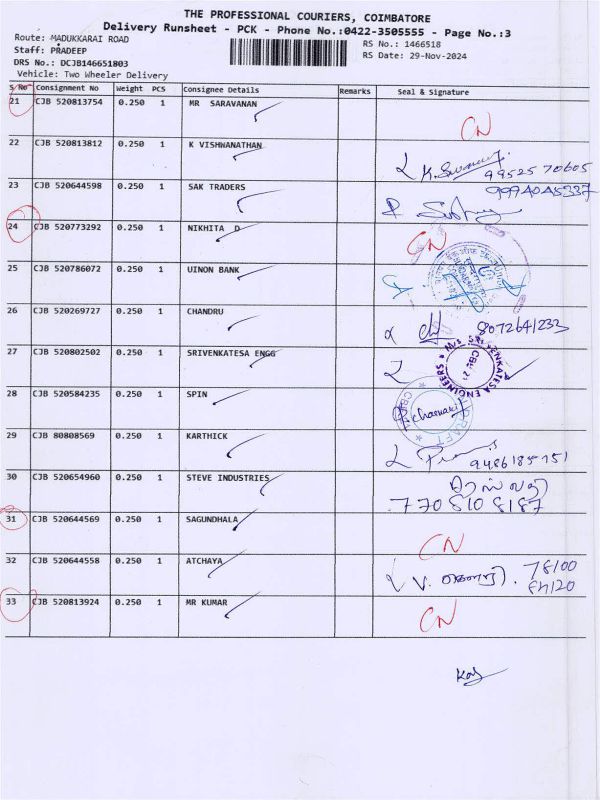 THE PROFESSIONAL COURIERS, COIMBATORE
Delivery Runsheet - PCK - Phone No.:0422-3505555 - Page No.:3
Route: MADUKKARAI ROAD
RS No.: 1466518
Staff: PRADEEP
RS Date: 29-Nov-2024
DRS No.: DCJB146651803
Vehicle: Two Wheeler Delivery
S No Consignment No Weight PCS Consignee Details Remarks Seal & Signature
21 CJB 520813754 0.250 1 MR SARAVANAN
CN
22 CJB 520813812 0.250 1 K VISHWANATHAN
99525 70605
23 CJB 520644598 0.250 1 SAK TRADERS
9994045337
24 CJB 520773292 0.250 1 NIKHITA D
CN
25 CJB 520786072 0.250 1 UINON BANK
26 CJB 520269727 0.250 1 CHANDRU
8072641233
27 CJB 520802502 0.250 1 SRIVENKATESA ENGG
M/s. SRI VENKATESA ENGINEERS
CBE-21
28 CJB 520584235 0.250 1 SPIN
29 CJB 80808569 0.250 1 KARTHICK
9486185751
30 CJB 520654960 0.250 1 STEVE INDUSTRIES
770 810 8187
31 CJB 520644569 0.250 1 SAGUNDHALA
CN
32 CJB 520644558 0.250 1 ATCHAYA
V.
78100
84120
33 CJB 520813924 0.250 1 MR KUMAR
CN